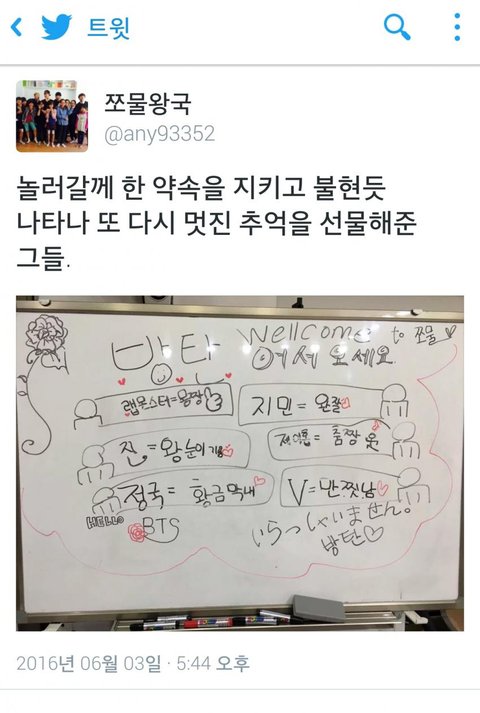 트윗
쪼물왕국
@any93352
놀러갈께 한 약속을 지키고 불현듯
나타나 또 다시 멋진 추억을 선물해준
그들.
Wellcome to 쪼물
방탄 어서오세요
랩몬스터=몸짱
지민=
진=왕눈이
제이홉=춤짱
정국=황금막내
V=만찢남
HELLO
BTS
いらっしゃいません。
방탄
2016년 06월 03일 · 5:44 오후